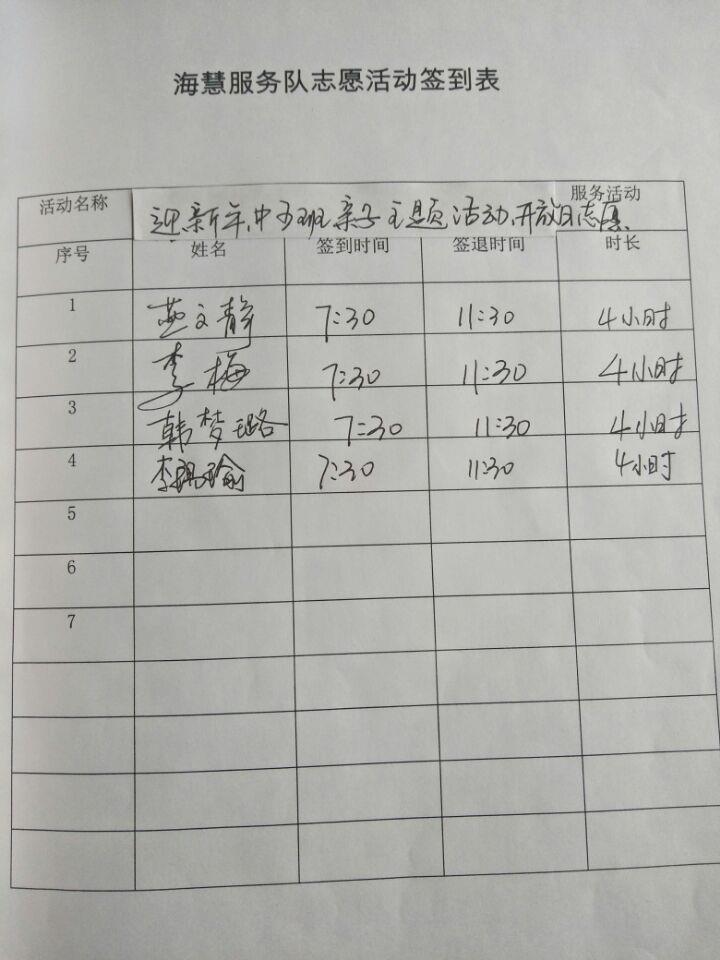 海慧服务队志愿活动签到表
活动名称 迎新年,中五班亲子主题活动,开放日志愿 服务活动
序号 姓名 签到时间 签退时间 时长
1 燕文静 7:30 11:30 4小时
2 李梅 7:30 11:30 4小时
3 韩梦璐 7:30 11:30 4小时
4 李 瑜 7:30 11:30 4小时
5
6
7